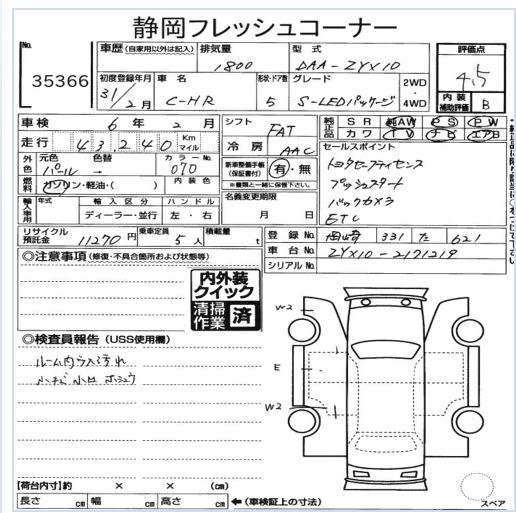 静岡フレッシュコーナー
No. 35366
車歴 (自家用以外は記入) 排気量 1800 型式 DAA-ZYX10 評価点 4.5
初度登録年月 31年2月 車名 C-HR 形状・ドア数 5 グレード S-LEDパッケージ 2WD 4WD 内装補助評価 B
車検 6年 2月 シフト FAT 純正品 SR 純AW PS PW
走行 43,240 Km マイル 冷房 AAC カワ TV ナビ エアB
外色 元色 パール 色替 → カラーNo. 070 新車整備手帳(保証書付) 有・無 セールスポイント
燃料 ガソリン・軽油・( ) 内装色 ※書類と一緒に保管下さい。 トヨタセーフティセンス
輸入車用 年式 輸入区分 ハンドル 名義変更期限 プッシュスタート
ディーラー・並行 左・右 月 日 バックカメラ
ETC
リサイクル預託金 11270円 乗車定員 5人 積載量 t 登録No. 331 た 621
車台No. ZYX10-2171219
シリアルNo.
◎注意事項 (修復・不具合箇所および状態等)
内外装
クイック
清掃作業 済
◎検査員報告 (USS使用欄)
ルーム内ウス汚れ
W2
E
W2
【荷台内寸】約 × × (cm)
長さ cm 幅 cm 高さ cm ←(車検証上の寸法)
スペア